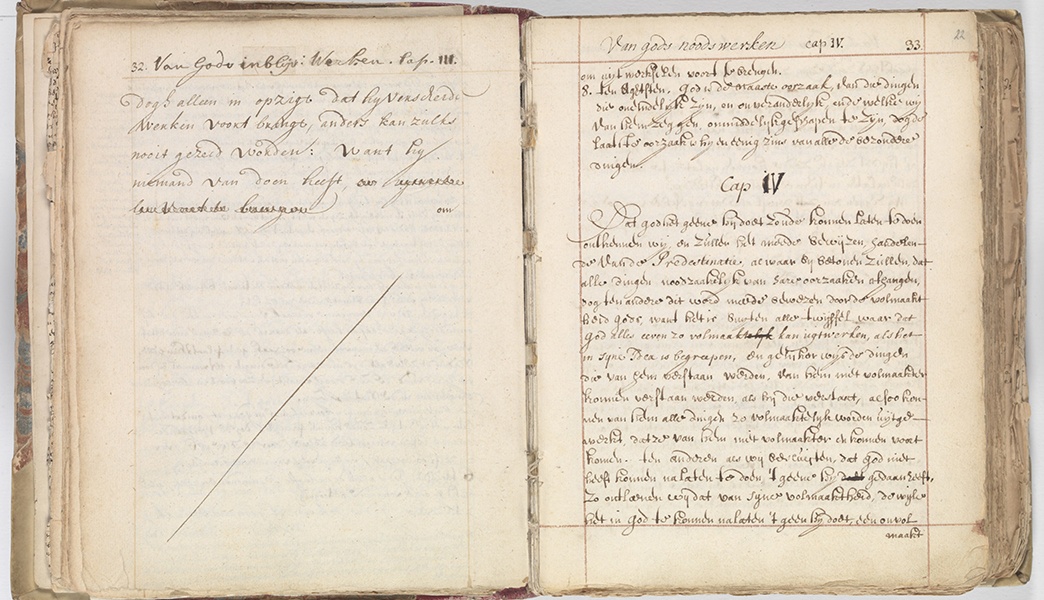 32. Van Gods inblijv: Werken. Cap. III.
Dogh alleen in opzigt dat hy verscheide
Werken voort brengt, anders kan zulks
nooit gezeid worden: Want hy
niemand van doen heeft,
om
Van gods noods werken cap IV. 33.
22
om uijtwerkselen voort te brengen.
8. ten agtsten, God is de naaste oorzaak, van die dingen
die oneindelijk zijn, en onveranderlijk, ende welke wij
van hem zeggen, onmiddelijk geschapen te zijn, dog de
laatste oorzaak is hij en eenigzins van alle de bezondere
dingen.
Cap IV
Dat god het geene hij doet zoude konnen laten te doen
ontkennen wij, en zullen het meede bewijzen, handelen-
de van de Predestinatie, alwaar wij betonen zullen, dat
alle dingen noodzaakelijk van hare oorzaaken afhangen,
dog ten andere dit word meede bewezen door de volmaakt
heid gods, want het is buiten alle twijffel waar dat
God alles even zo volmaakt kan uijtwerken, als het
in syne Idea is begreepen, en gelijkerwijs de dingen
die van hem verstaan werden, van hem niet volmaakter
konnen verstaan werden, als hij die verstaat, alsoo kon-
nen van hem alle dingen zo volmaaktelijk worden uijtge-
werkt, dat ze van hem niet volmaakter en konnen voort
komen. ten anderen als wij besluijten, dat god niet
heeft konnen nalaten te doen, 't geene hij gedaan heeft,
zo ontleenen wij dat van syne volmaaktheid, dewijle
het in god te konnen nalaten 't geen hij doet, een onvol
maakt